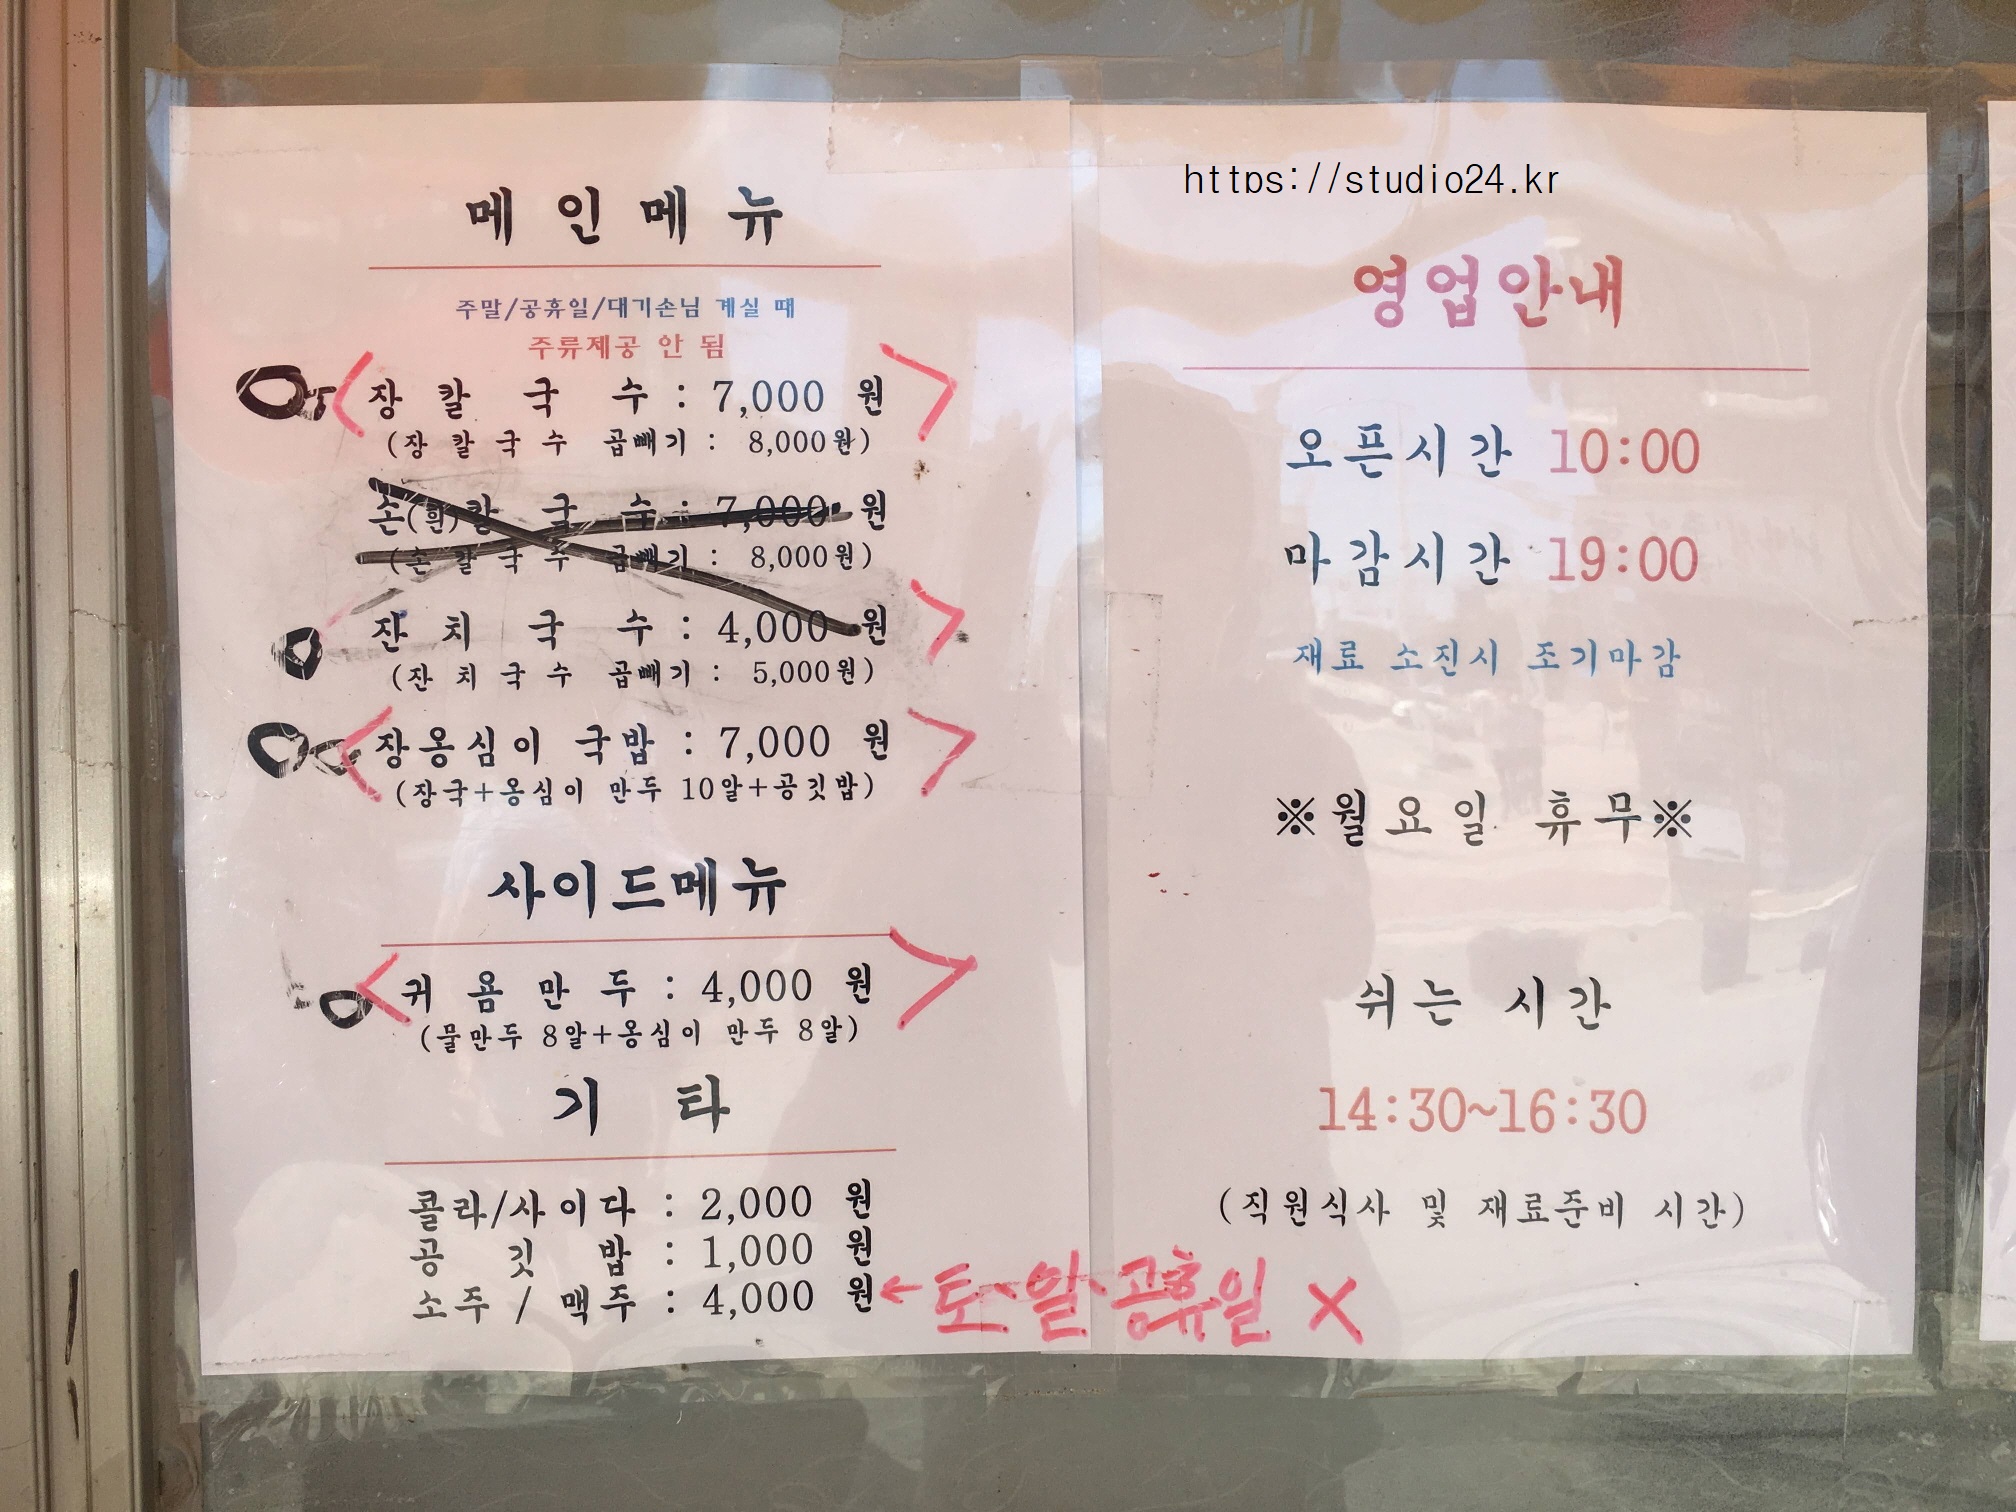 메인메뉴
주말/공휴일/대기손님 계실 때
주류제공 안 됨
장칼국수 : 7,000 원
(장칼국수 곱빼기 : 8,000원)
손(흰)칼국수 : 7,000 원
(손칼국수 곱빼기 : 8,000원)
잔치국수 : 4,000 원
(잔치국수 곱빼기 : 5,000원)
장옹심이 국밥 : 7,000 원
(장국+옹심이 만두 10알+공깃밥)
사이드메뉴
귀욤만두 : 4,000 원
(물만두 8알+옹심이 만두 8알)
기 타
콜라/사이다 : 2,000 원
공깃밥 : 1,000 원
소주 / 맥주 : 4,000 원 ← 토、일、공휴일 X
https://studio24.kr
영업안내
오픈시간 10:00
마감시간 19:00
재료 소진시 조기마감
※월요일 휴무※
쉬는 시간
14:30~16:30
(직원식사 및 재료준비 시간)